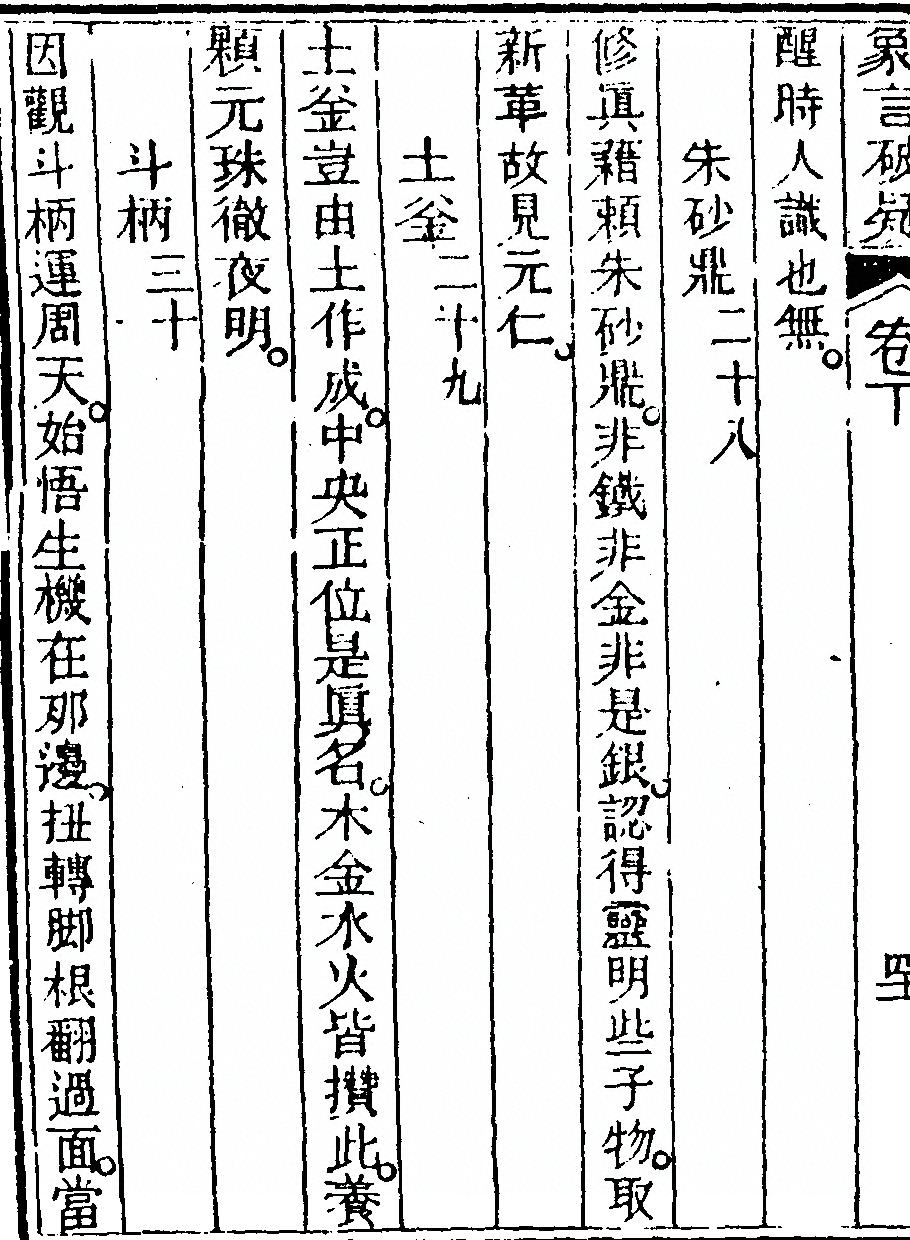 象言破疑 卷下 四十
醒時人識也無。
朱砂鼎二十八
修眞藉賴朱砂鼎。非鐵非金非是銀。認得靈明些子物。取
新革故見元仁。
土釜二十九
土釜豈由土作成。中央正位是眞名。木金水火皆攢此。養
顆元珠徹夜明。
斗柄三十
因觀斗柄運周天。始悟生機在那邊。扭轉脚根翻過面。當